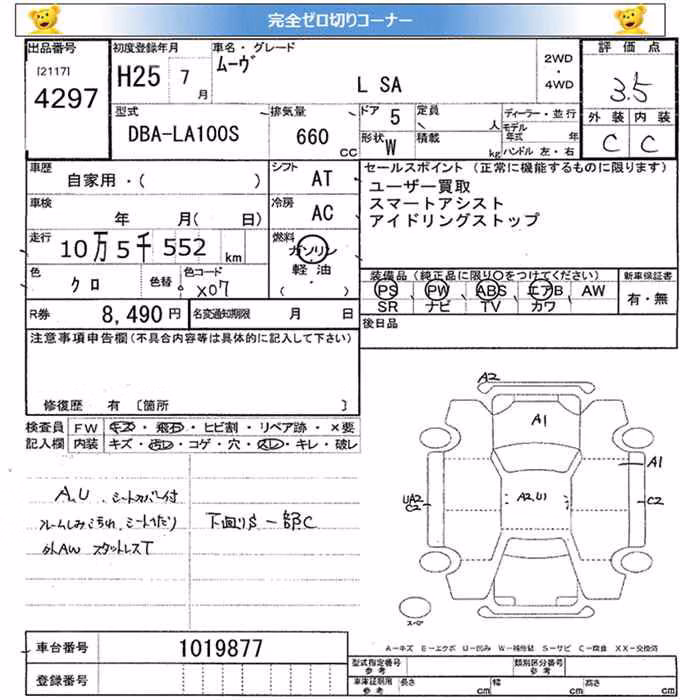 完全ゼロ切りコーナー
出品番号
[2117]
4297
初度登録年月
H25 7 月
車名・グレード
ムーヴ
L SA
2WD
・
4WD
評価点
3.5
外装 内装
C C
型式
DBA-LA100S
排気量
660 CC
ドア 5
形状 W
定員 人
積載 kg
ディーラー・並行
モデル年式 年
ハンドル 左・右
車歴
自家用・( )
シフト AT
車検
年 月( 日)
冷房 AC
走行
10万5千552 km
燃料
ガソリン
軽油
( )
色
クロ
色替
色コード
X07
R券 8,490 円
名変通知期限 月 日
セールスポイント (正常に機能するものに限ります)
ユーザー買取
スマートアシスト
アイドリングストップ
装備品 (純正品に限り○をつけてください)
PS PW ABS エアB AW
SR ナビ TV カワ
新車保証書
有・無
後日品
注意事項申告欄 (不具合内容等は具体的に記入して下さい)
修復歴 有 〔箇所 〕
検査員記入欄
FW キズ・飛石・ヒビ割・リペア跡・×要
内装 キズ・汚レ・コゲ・穴・スレ・キレ・破レ
A,U 、シートカバー付
フレームしみこちれ、シートへたり
外AW スタットレスT
下廻りS 一部C
A2
A1
A1
A2,U1
UA2
C2
C2
スペアー
A-キズ E-エクボ U-凹み W-補修跡 S-サビ C-腐食 XX-交換済
車台番号 1019877
登録番号
型式指定番号
参考
類別区分番号
参考
車庫証明用
参考
長さ cm 幅 cm 高さ cm